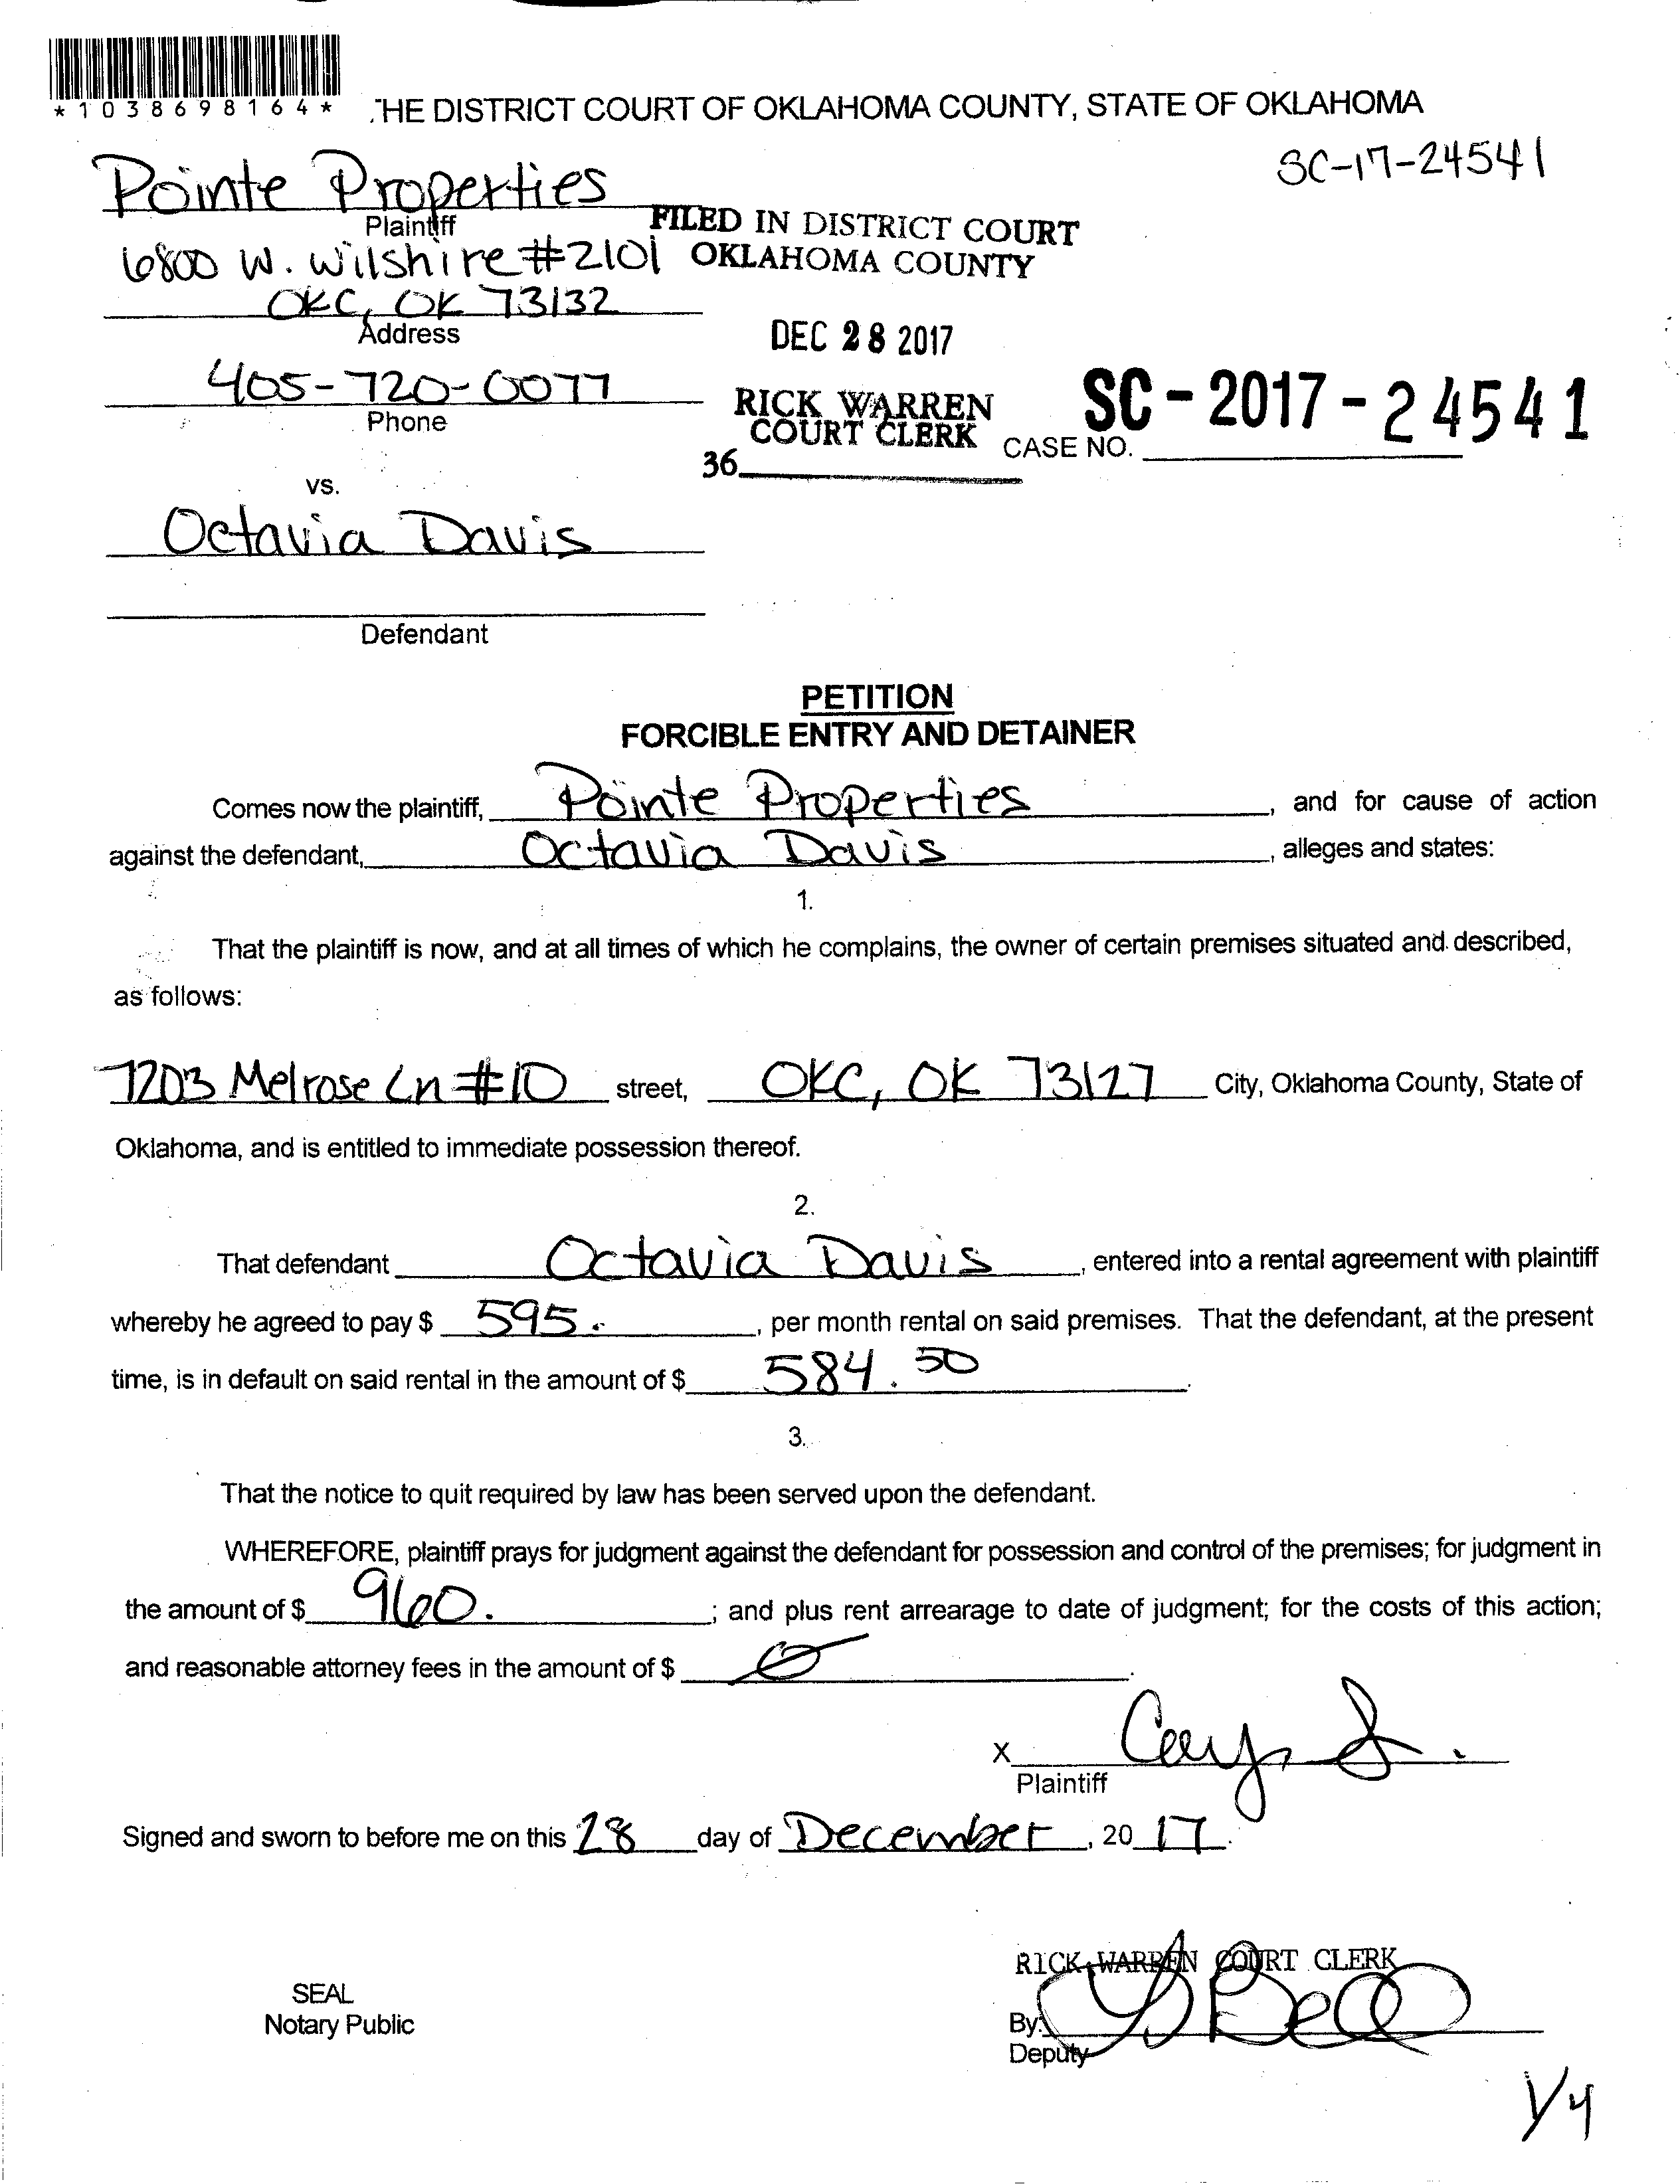 *1038698164*
THE DISTRICT COURT OF OKLAHOMA COUNTY, STATE OF OKLAHOMA
SC-17-24541
Pointe Properties
Plaintiff
FILED IN DISTRICT COURT
6800 W. Wilshire #2101
OKLAHOMA COUNTY
OKC, OK 73132
Address
DEC 28 2017
405-720-0077
Phone
RICK WARREN
COURT CLERK
SC-2017-24541
CASE NO.
36
vs.
Octavia Davis
Defendant
PETITION
FORCIBLE ENTRY AND DETAINER
Comes now the plaintiff, Pointe Properties, and for cause of action
against the defendant, Octavia Davis, alleges and states:
1.
That the plaintiff is now, and at all times of which he complains, the owner of certain premises situated and described,
as follows:
7203 Melrose Ln #10 street, OKC, OK 73127 City, Oklahoma County, State of
Oklahoma, and is entitled to immediate possession thereof.
2.
That defendant Octavia Davis, entered into a rental agreement with plaintiff
whereby he agreed to pay $ 595., per month rental on said premises. That the defendant, at the present
time, is in default on said rental in the amount of $ 584.50.
3.
That the notice to quit required by law has been served upon the defendant.
WHEREFORE, plaintiff prays for judgment against the defendant for possession and control of the premises; for judgment in
the amount of $ 960. ; and plus rent arrearage to date of judgment; for the costs of this action;
and reasonable attorney fees in the amount of $ 0.
X
Plaintiff
Signed and sworn to before me on this 28 day of December, 2017.
RICK WARREN COURT CLERK
SEAL
Notary Public
By:
Deputy
1/4